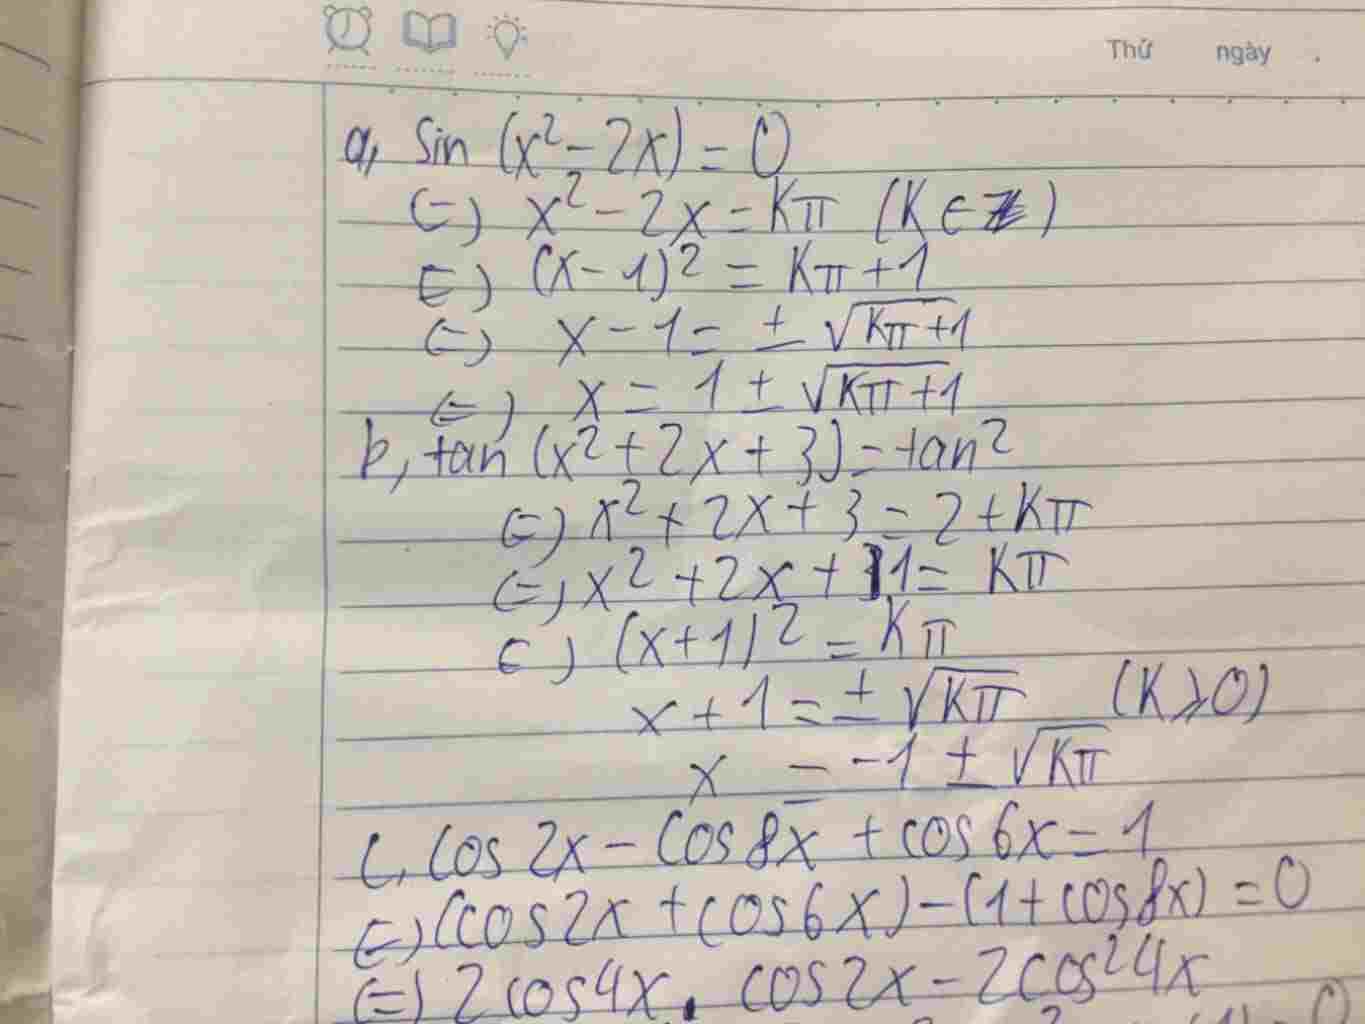 Thứ ngày .
a, Sin (x² - 2x) = 0
(=) x² - 2x = Kπ (K ∈ Z)
(=) (x - 1)² = Kπ + 1
(=) x - 1 = ± √(Kπ + 1)
(=) x = 1 ± √(Kπ + 1)
b, tan (x² + 2x + 3) = tan2
(=) x² + 2x + 3 = 2 + Kπ
(=) x² + 2x + 1 = Kπ
(=) (x + 1)² = Kπ
x + 1 = ± √Kπ (K ⩾ 0)
x = -1 ± √Kπ
C, Cos 2x - Cos 8x + cos 6x = 1
(=) (cos 2x + cos 6x) - (1 + cos 8x) = 0
(=) 2 cos 4x . cos 2x - 2cos² 4x